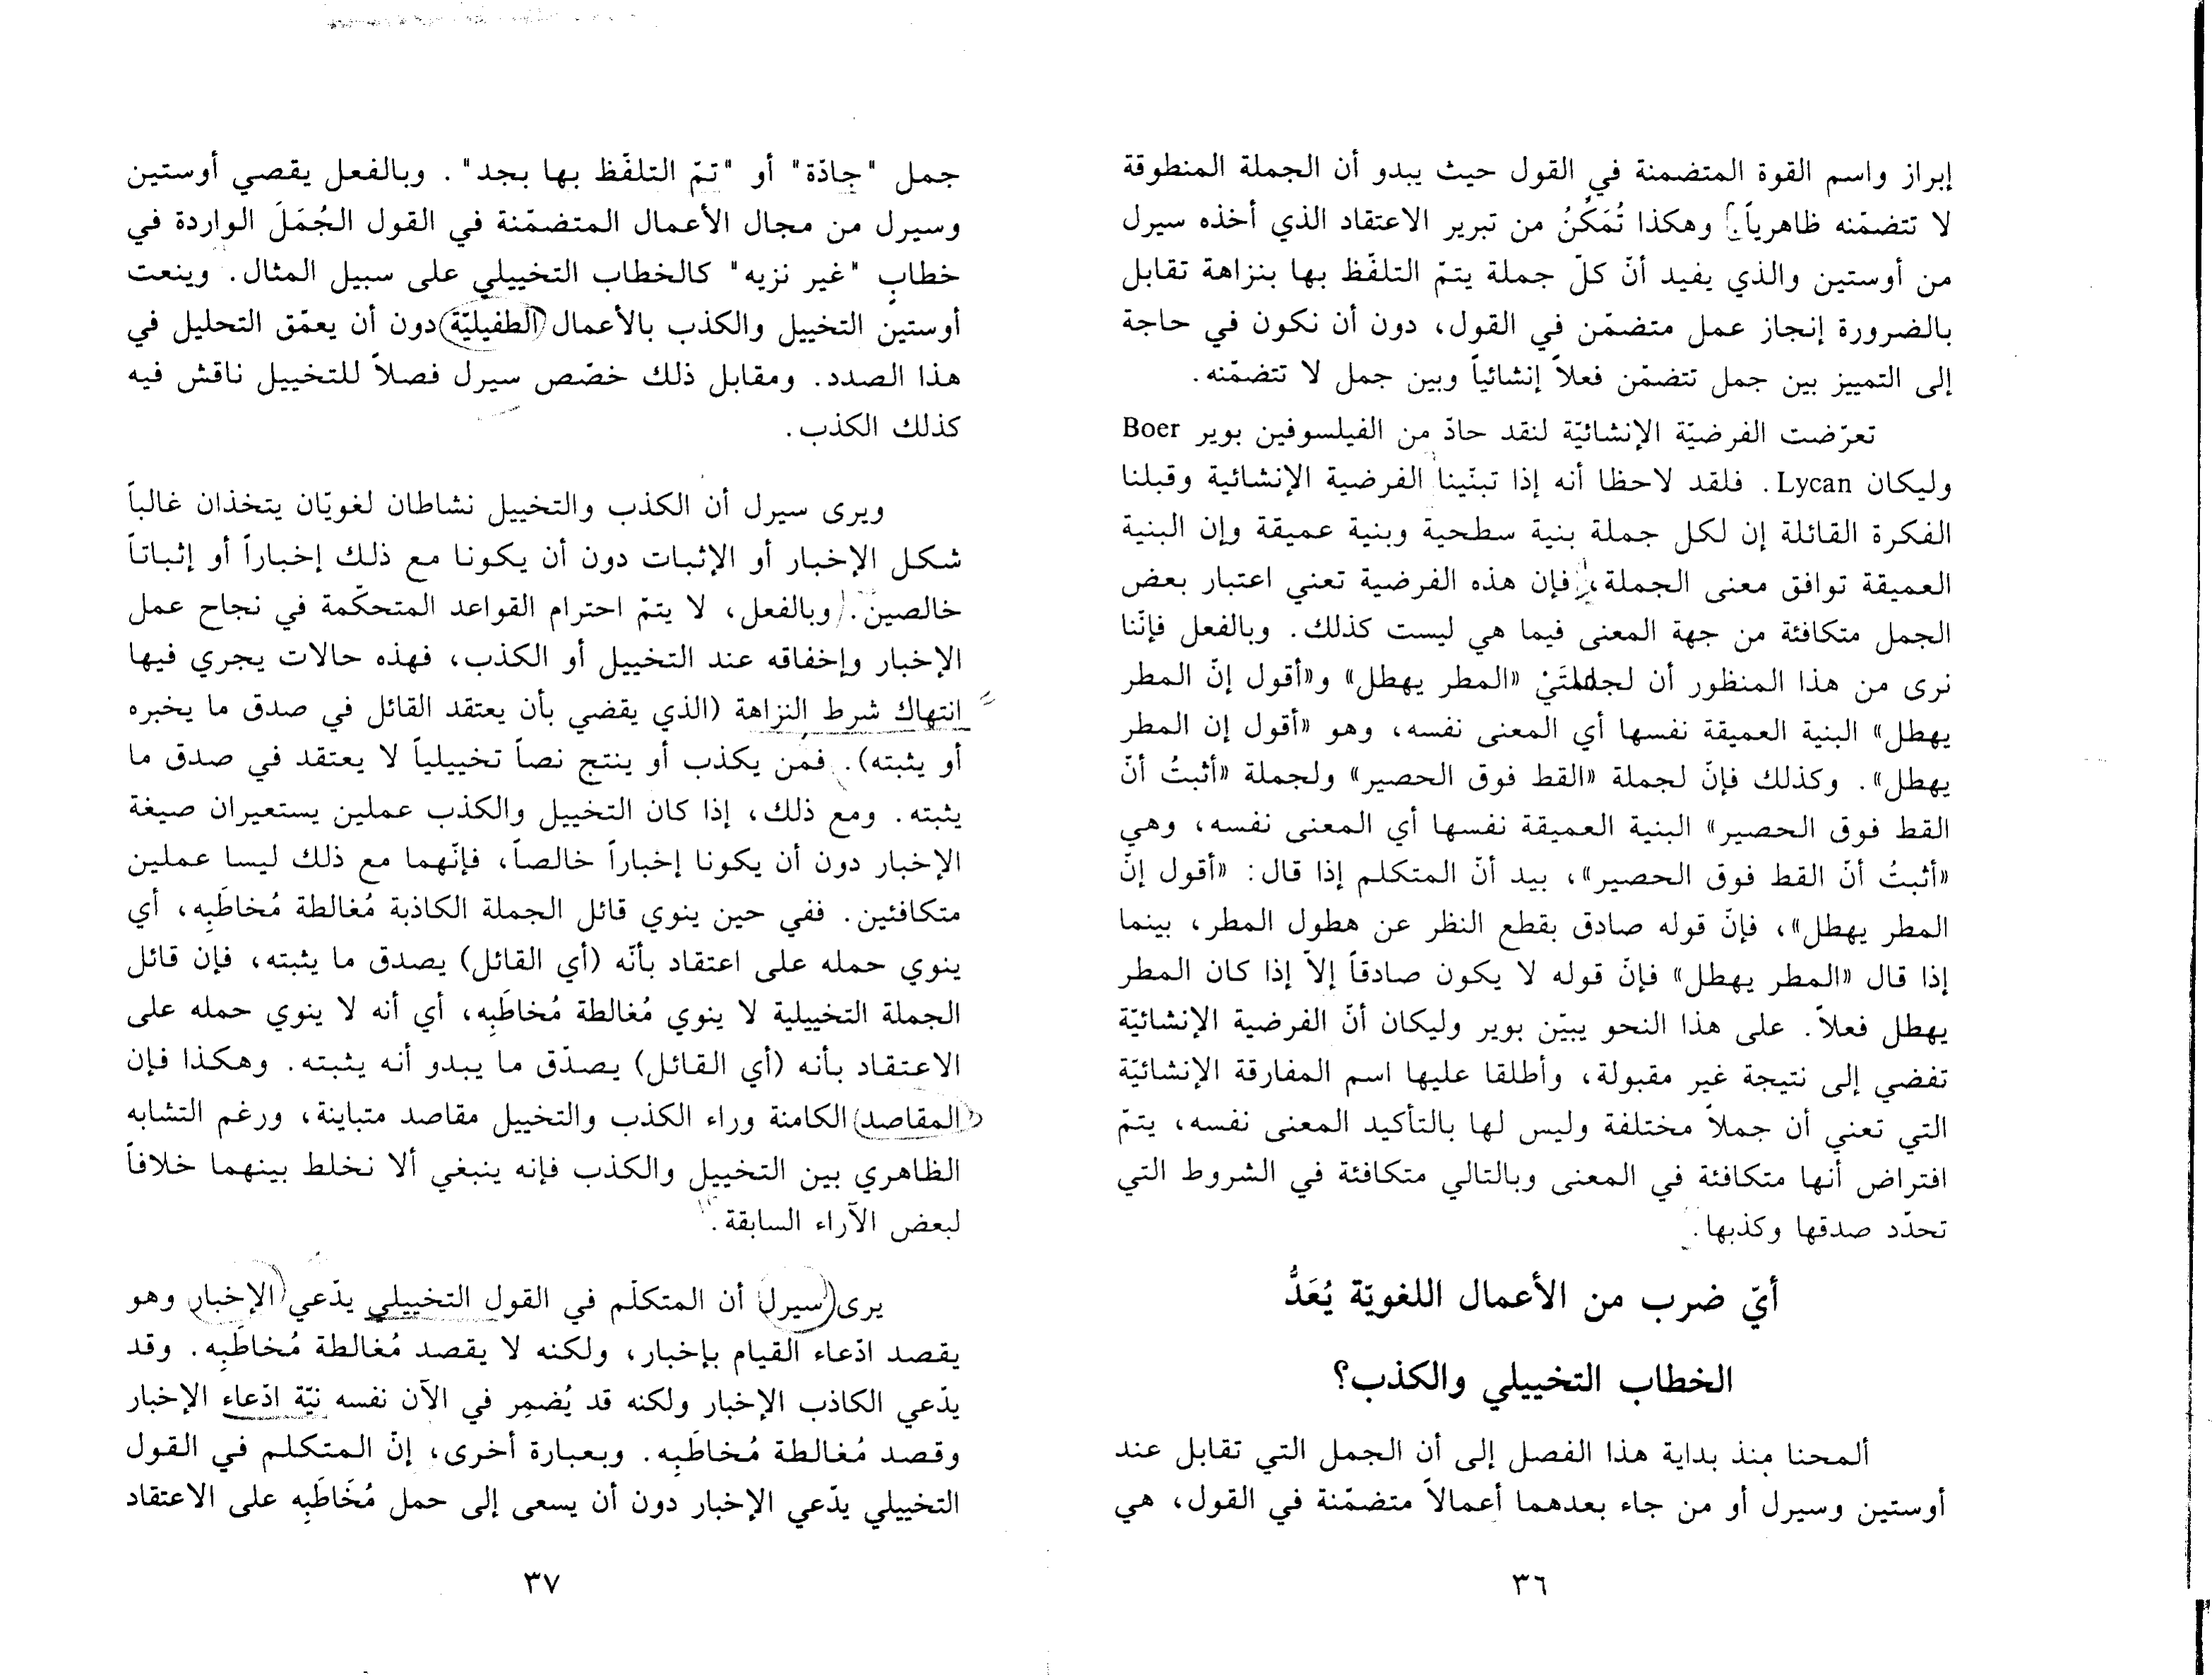 إبراز واسم القوة المتضمنة في القول حيث يبدو أن الجملة المنطوقة
لا تتضمّنه ظاهرياً. وهكذا تُمَكِّنُ من تبرير الاعتقاد الذي أخذه سيرل
من أوستين والذي يفيد أنّ كلّ جملة يتمّ التلفّظ بها بنزاهة تقابل
بالضرورة إنجاز عمل متضمّن في القول، دون أن نكون في حاجة
إلى التمييز بين جمل تتضمّن فعلاً إنشائياً وبين جمل لا تتضمّنه.
تعرّضت الفرضيّة الإنشائيّة لنقد حادّ من الفيلسوفين بوير Boer
وليكان Lycan. فلقد لاحظا أنه إذا تبنّينا الفرضية الإنشائية وقبلنا
الفكرة القائلة إن لكل جملة بنية سطحية وبنية عميقة وإن البنية
العميقة توافق معنى الجملة، فإن هذه الفرضية تعني اعتبار بعض
الجمل متكافئة من جهة المعنى فيما هي ليست كذلك. وبالفعل فإنّنا
نرى من هذا المنظور أن لجملتَيْ «المطر يهطل» و«أقول إنّ المطر
يهطل» البنية العميقة نفسها أي المعنى نفسه، وهو «أقول إن المطر
يهطل». وكذلك فإنّ لجملة «القط فوق الحصير» ولجملة «أثبتُ أنّ
القط فوق الحصير» البنية العميقة نفسها أي المعنى نفسه، وهي
«أثبتُ أنّ القط فوق الحصير»، بيد أنّ المتكلم إذا قال: «أقول إنّ
المطر يهطل»، فإنّ قوله صادق بقطع النظر عن هطول المطر، بينما
إذا قال «المطر يهطل» فإنّ قوله لا يكون صادقاً إلاّ إذا كان المطر
يهطل فعلاً. على هذا النحو يبيّن بوير وليكان أنّ الفرضية الإنشائيّة
تفضي إلى نتيجة غير مقبولة، وأطلقا عليها اسم المفارقة الإنشائيّة
التي تعني أن جملاً مختلفة وليس لها بالتأكيد المعنى نفسه، يتمّ
افتراض أنها متكافئة في المعنى وبالتالي متكافئة في الشروط التي
تحدّد صدقها وكذبها.
أيّ ضرب من الأعمال اللغويّة يُعَدُّ
الخطاب التخييلي والكذب؟
ألمحنا منذ بداية هذا الفصل إلى أن الجمل التي تقابل عند
أوستين وسيرل أو من جاء بعدهما أعمالاً متضمّنة في القول، هي
٣٦
جمل "جادّة" أو "تمّ التلفّظ بها بجد". وبالفعل يقصي أوستين
وسيرل من مجال الأعمال المتضمّنة في القول الجُمَلَ الواردة في
خطابٍ "غير نزيه" كالخطاب التخييلي على سبيل المثال. وينعت
أوستين التخييل والكذب بالأعمال الطفيليّة دون أن يعمّق التحليل في
هذا الصدد. ومقابل ذلك خصّص سيرل فصلاً للتخييل ناقش فيه
كذلك الكذب.
ويرى سيرل أن الكذب والتخييل نشاطان لغويّان يتخذان غالباً
شكل الإخبار أو الإثبات دون أن يكونا مع ذلك إخباراً أو إثباتاً
خالصين. وبالفعل، لا يتمّ احترام القواعد المتحكّمة في نجاح عمل
الإخبار وإخفاقه عند التخييل أو الكذب، فهذه حالات يجري فيها
انتهاك شرط النزاهة (الذي يقضي بأن يعتقد القائل في صدق ما يخبره
أو يثبته). فمن يكذب أو ينتج نصاً تخييلياً لا يعتقد في صدق ما
يثبته. ومع ذلك، إذا كان التخييل والكذب عملين يستعيران صيغة
الإخبار دون أن يكونا إخباراً خالصاً، فإنّهما مع ذلك ليسا عملين
متكافئين. ففي حين ينوي قائل الجملة الكاذبة مُغالطة مُخاطَبِه، أي
ينوي حمله على اعتقاد بأنّه (أي القائل) يصدق ما يثبته، فإن قائل
الجملة التخييلية لا ينوي مُغالطة مُخاطَبِه، أي أنه لا ينوي حمله على
الاعتقاد بأنه (أي القائل) يصدّق ما يبدو أنه يثبته. وهكذا فإن
المقاصد الكامنة وراء الكذب والتخييل مقاصد متباينة، ورغم التشابه
الظاهري بين التخييل والكذب فإنه ينبغي ألا نخلط بينهما خلافاً
لبعض الآراء السابقة.
يرى سيرل أن المتكلّم في القول التخييلي يدّعي الإخبار وهو
يقصد ادّعاء القيام بإخبار، ولكنه لا يقصد مُغالطة مُخاطَبِه. وقد
يدّعي الكاذب الإخبار ولكنه قد يُضمِر في الآن نفسه نيّة ادّعاء الإخبار
وقصد مُغالطة مُخاطَبِه. وبعبارة أخرى، إنّ المتكلم في القول
التخييلي يدّعي الإخبار دون أن يسعى إلى حمل مُخَاطَبِه على الاعتقاد
٣٧